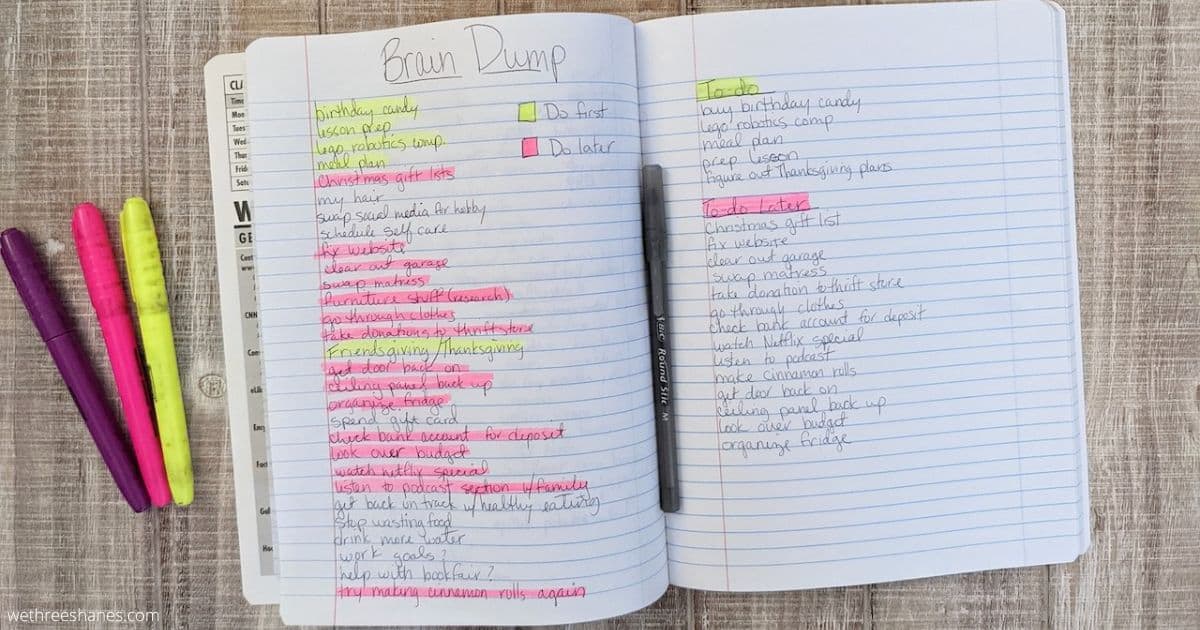 Brain Dump
birthday candy
lesson prep
lego robotics comp.
meal plan
Christmas gift lists
my hair
swap social media for hobby
schedule self care
fix website
clear out garage
swap matress
furniture stuff (research)
go through clothes
take donations to thrift store
Friendsgiving/Thanksgiving
get door back on
ceiling panel back up
organize fridge
spend gift card
check bank account for deposit
look over budget
watch netflix special
listen to podcast section w/family
get back on track w/healthy eating
stop wasting food
drink more water
work goals?
help with bookfair?
try making cinnamon rolls again
Do first
Do later
To-do
buy birthday candy
lego robotics comp
meal plan
prep lesson
figure out Thanksgiving plans
To-do Later
Christmas gift list
fix website
clear out garage
swap matress
take donation to thrift store
go through clothes
check bank account for deposit
watch Netflix special
listen to podcast
make cinnamon rolls
get door back on
ceiling panel back up
look over budget
organize fridge
BIC Round Stic M
CL
Time
Mon
Tues
Wed
Thu
Frid
Satu
W
GE
CNN
wethreeshanes.com